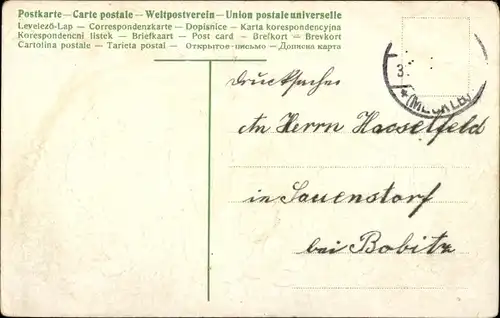 Postkarte — Carte postale — Weltpostverein — Union postale universelle
Levelező-Lap — Correspondenzkarte — Dopisnice — Karta korespondencyjna
Korespondenční lístek — Briefkaart — Post card — Brefkort — Brevkort
Cartolina postale — Tarieta postal — Открытое письмо — Дописна карта
3.
(MECKLB)
Drucksache
An Herrn Hasselfeld
in Sauenstorf
bei Bobitz